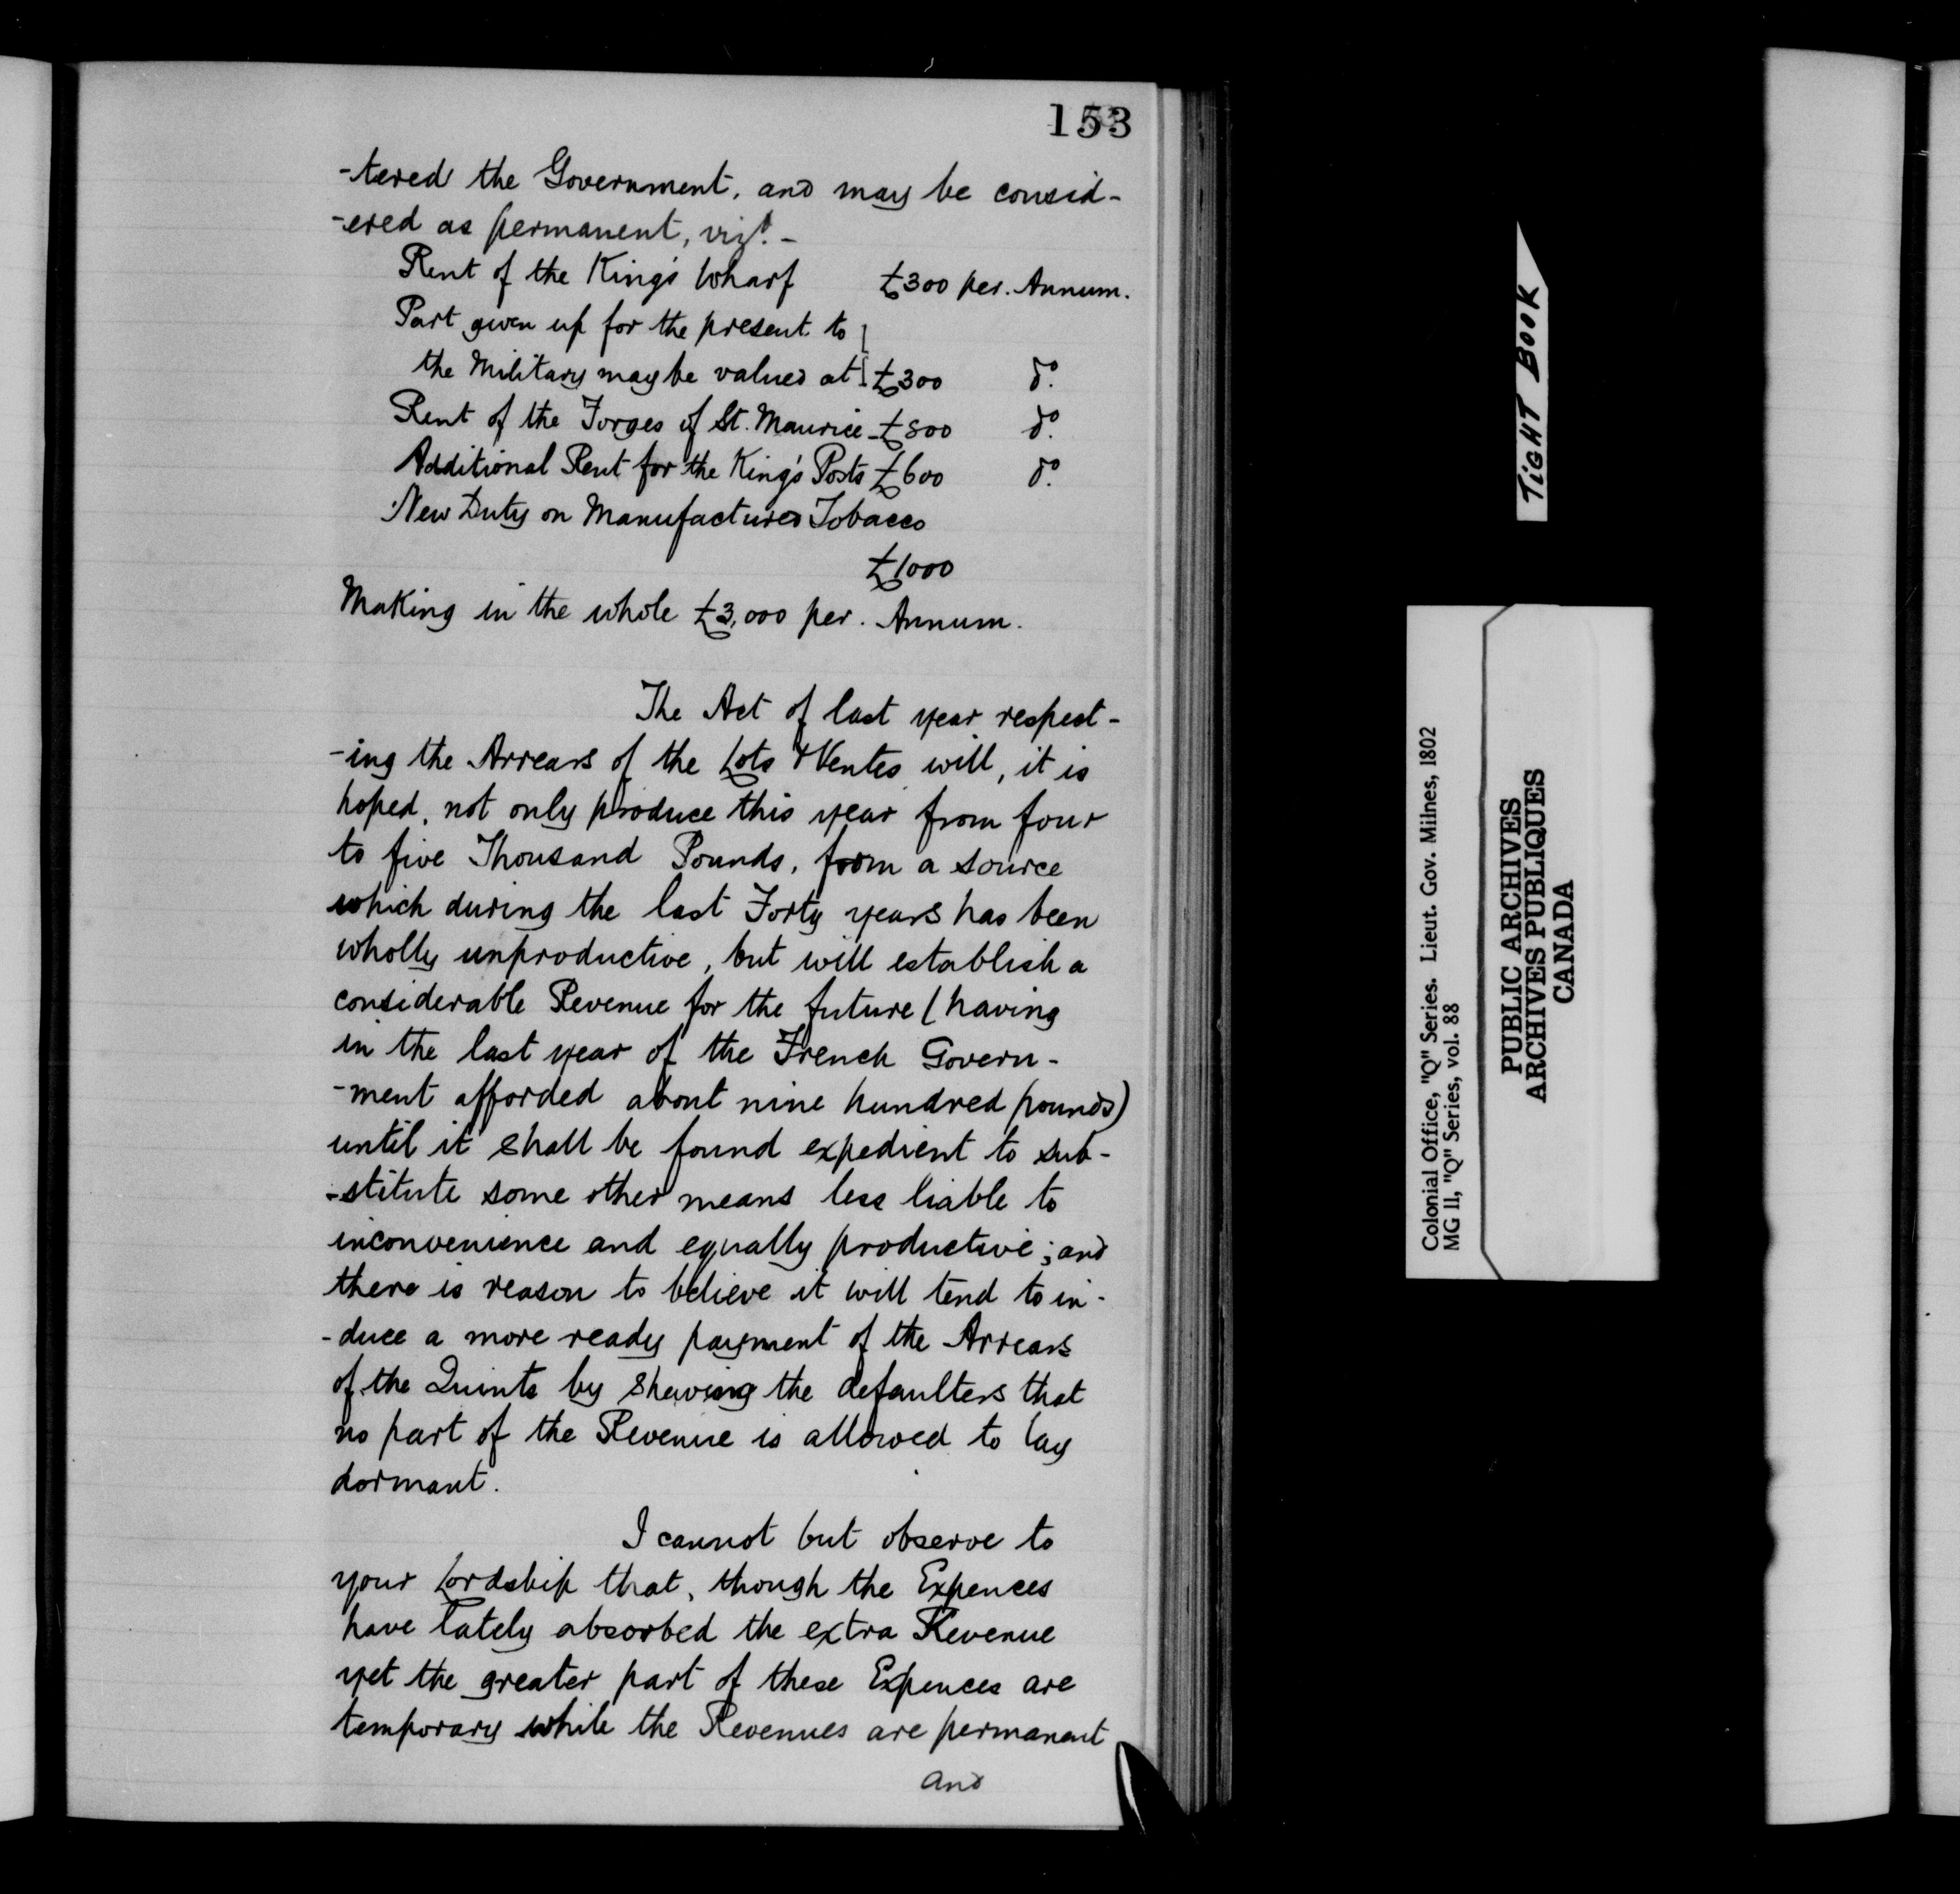 153
-tered the Government, and may be consid-
-ered as permanent, vizt. -
Rent of the King's Wharf £300 per. Annum.
Part given up for the present to
the Military may be valued at £300 do.
Rent of the Forges of St. Maurice - £800 do.
Additional Rent for the King's Posts £600 do.
New Duty on Manufactured Tobacco
£1000
Making in the whole £3,000 per. Annum.
The Act of last year respect-
-ing the Arrears of the Lots & Ventes will, it is
hoped, not only produce this year from four
to five Thousand Pounds, from a source
which during the last Forty years has been
wholly unproductive, but will establish a
considerable Revenue for the future (having
in the last year of the French Govern-
-ment afforded about nine hundred pounds)
until it shall be found expedient to sub-
-stitute some other means less liable to
inconvenience and equally productive; and
there is reason to believe it will tend to in-
-duce a more ready payment of the Arrears
of the Quints by shewing the defaulters that
no part of the Revenue is allowed to lay
dormant.
I cannot but observe to
your Lordship that, though the Expences
have lately absorbed the extra Revenue
yet the greater part of these Expences are
temporary while the Revenues are permanent
and
TIGHT BOOK
Colonial Office, "Q" Series. Lieut. Gov. Milnes, 1802
MG 11, "Q" Series, vol. 88
PUBLIC ARCHIVES
ARCHIVES PUBLIQUES
CANADA